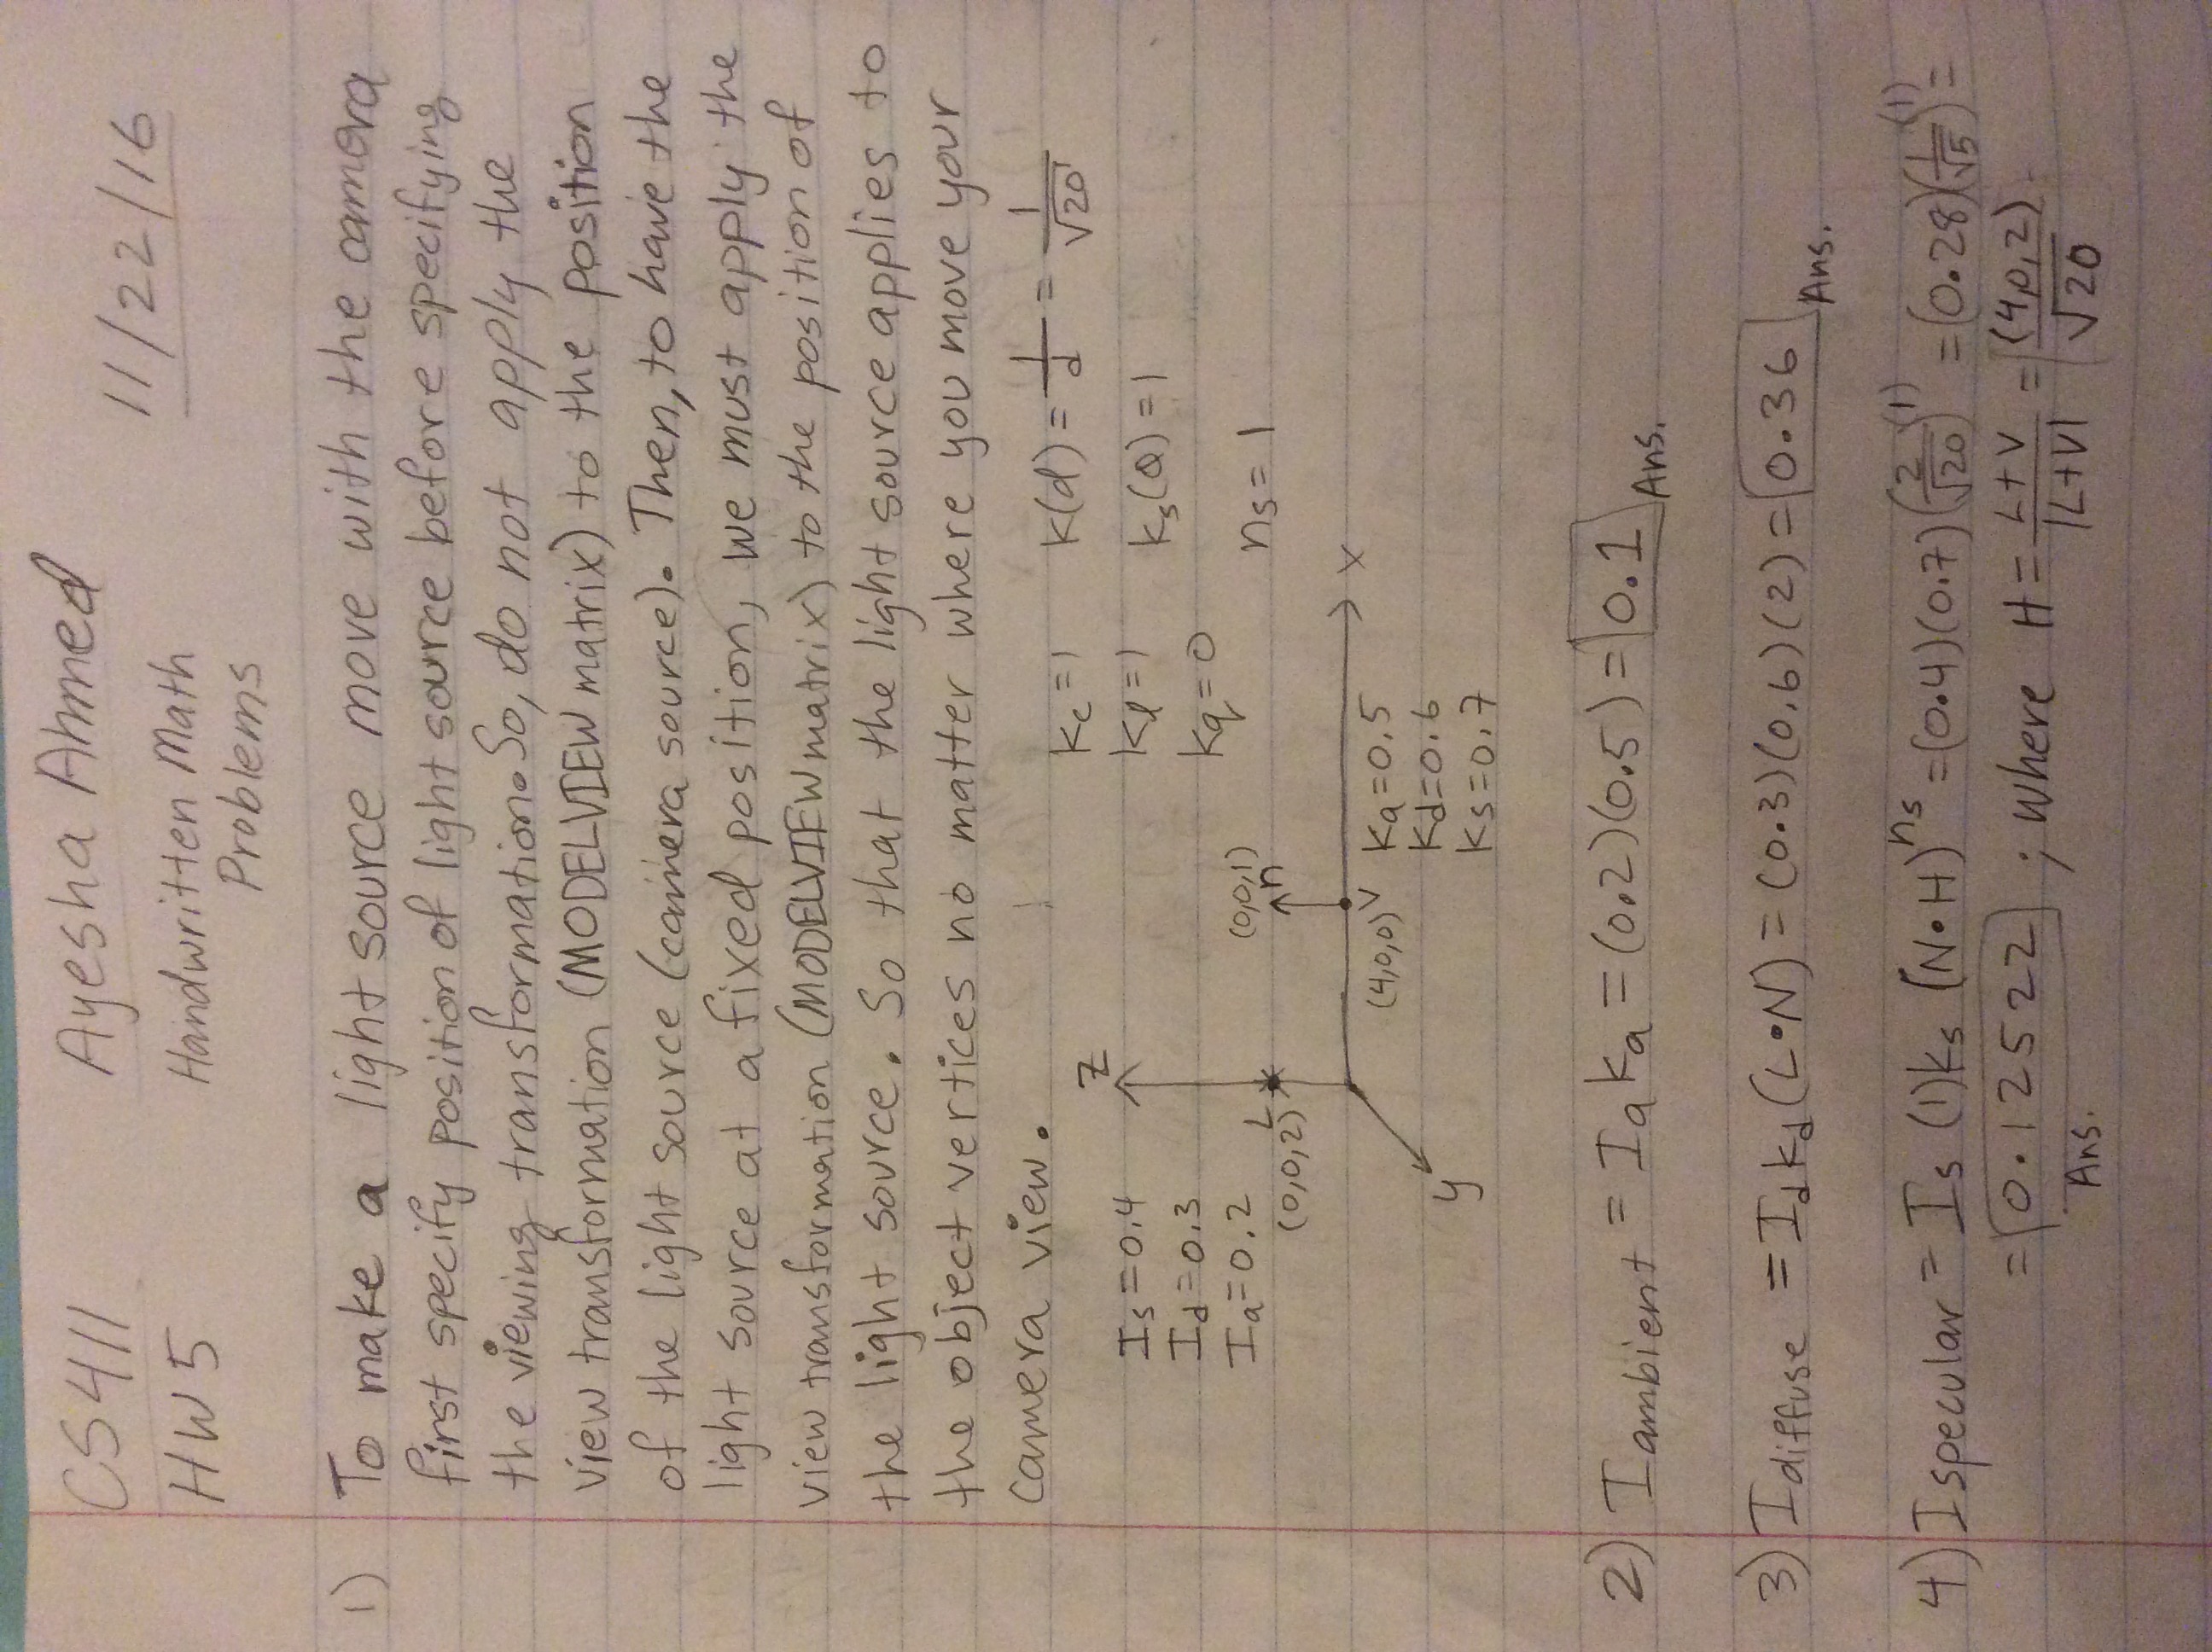 CS411 Ayesha Ahmed 11/22/16
HW5 Handwritten Math
Problems
1) To make a light source move with the camera
first specify position of light source before specifying
the viewing transformation. So, do not apply the
view transformation (MODELVIEW matrix) to the position
of the light source (camera source). Then, to have the
light source at a fixed position, we must apply the
view transformation (MODELVIEW matrix) to the position of
the light source. So that the light source applies to
the object vertices no matter where you move your
camera view.
kc=1 k(d) = 1/d = 1/√20
Z
Is=0.4 kl=1 ks(Q)=1
Id=0.3
Ia=0.2 kq=0 ns=1
L (0,0,1)
(0,0,2) n
x
(4,0,0) V ka=0.5
kd=0.6
y ks=0.7
2) Iambient = Ia ka = (0.2)(0.5) = 0.1 Ans.
3) Idiffuse = Id kd (L•N) = (0.3)(0.6)(2) = 0.36 Ans.
4) Ispecular = Is (1)ks (N•H)^ns = (0.4)(0.7)(2/√20)^(1) = (0.28)(1/√5)^(1) =
= 0.12522 ; where H = L+V/|L+V| = (4,0,2)/√20
Ans.